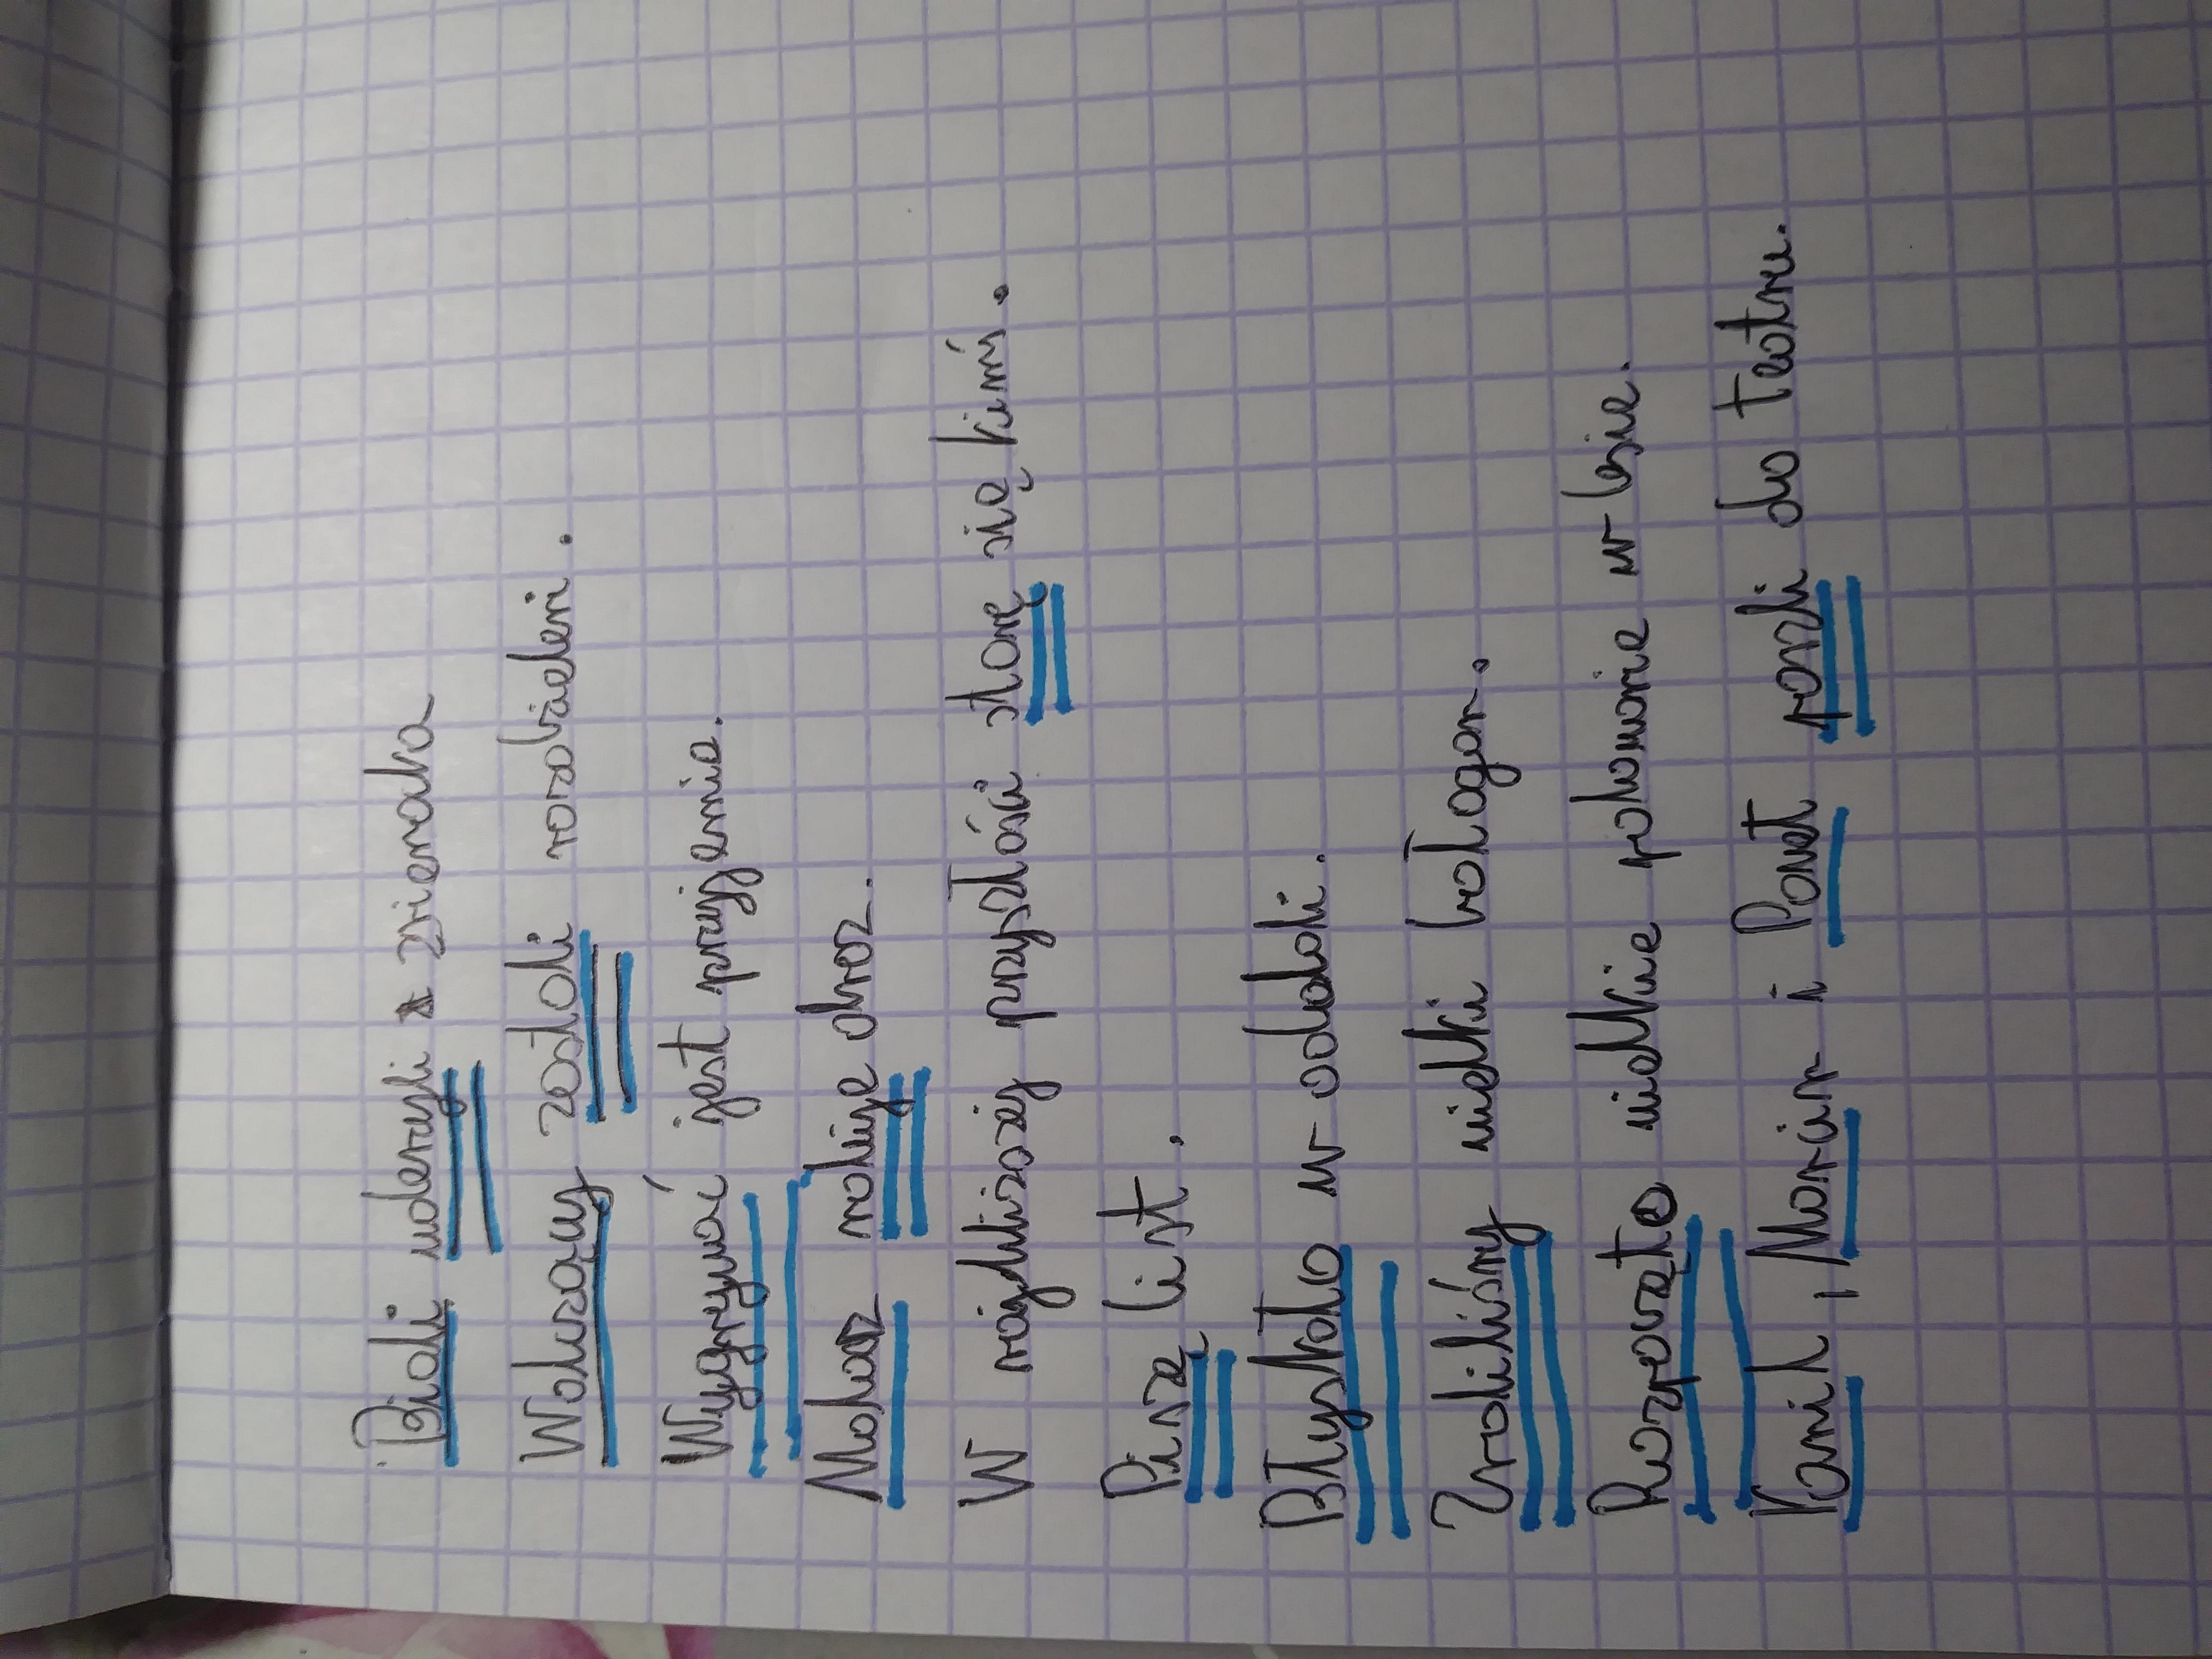 Biali uderzyli z zienacka
Walczący zostali rozbici.
Wygrywać jest przyjemnie.
Malarz maluje obraz.
W najbliższej przyszłości stanę się kimś.
Piszę list.
Błyskało w oddali.
Zrobiliśmy wielki bałagan.
Rozpoczęto wielkie polowanie w lesie.
Kamil, Marcin i Paweł poszli do teatru.